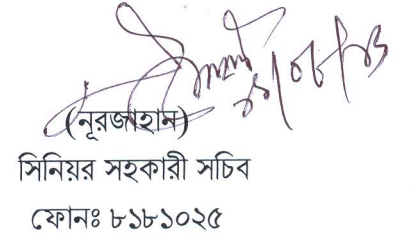 (নূরজাহান)
সিনিয়র সহকারী সচিব
ফোনঃ ৮১৮১০২৫